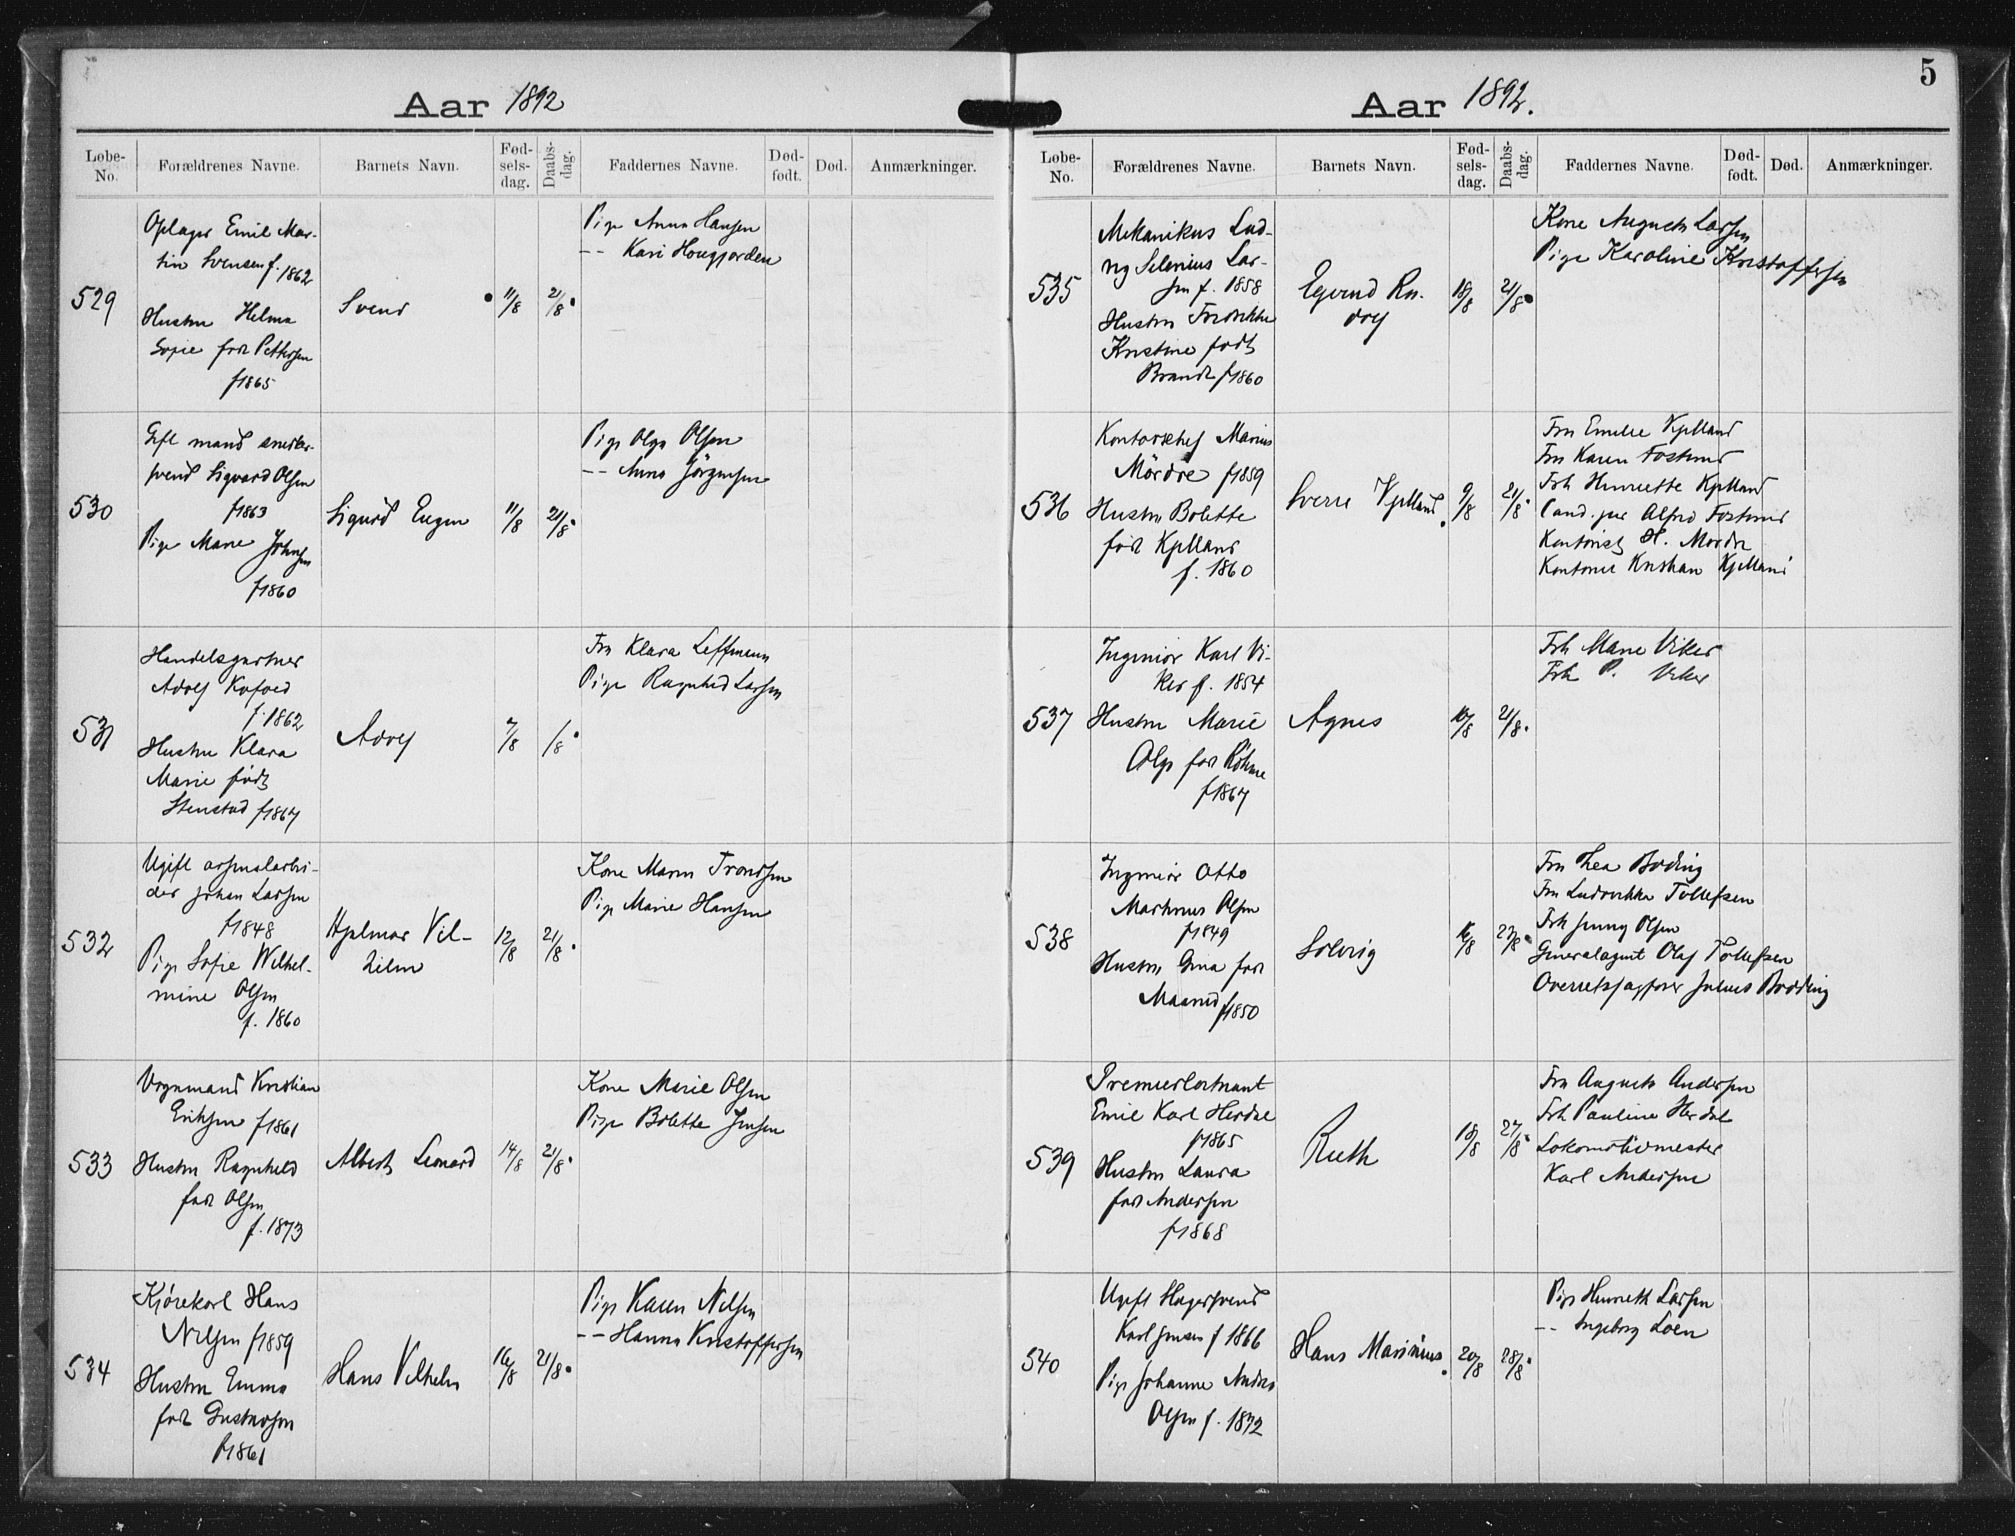 Aar 1892
Løbe-No. Forældrenes Navne. Barnets Navn. Fødselsdag. Daabsdag. Faddernes Navne. Dødfødt. Død. Anmærkninger.
529
Oplager Emil Mar-
tin Svensen f. 1862
Hustru Helma
Sofie født Pettersen
f 1865
Svend
11/8
21/8
Pige Anna Hansen
-- Kari Hougjorden
530
Gift mand snedker-
svend Sigvard Olsen
f 1863
Pige Marie Johnsen
f 1860
Sigurd Eugen
11/8
21/8
Pige Olga Olsen
-- Anna Jörgensen
531
Handelsgartner
Adolf Kofoed
f. 1862
Hustru Klara
Marie født
Stenstad f 1867
Adolf
7/8
/8
Fru Klara Leffmann
Pige Ragnhild Larsen
532
Ugift arsenalarbei-
der Johan Larsen
f 1848
Pige Sofie Wilhel-
mine Olsen
f. 1860
Hjalmar Vil-
helm
12/8
21/8
Kone Maren Trondsen
Pige Marie Hansen
533
Vognmand Kristian
Eriksen f 1861
Hustru Ragnhild
født Olsen
f. 1873
Albert Leonard
14/8
21/8
Kone Marie Olsen
Pige Bolette Jensen
534
Kjørekarl Hans
Nilsen f 1859
Hustru Emma
født Gustavsen
f 1861
Hans Vilhelm
16/8
21/8
Pige Karen Nilsen
-- Hanna Kristoffersen
5
Aar 1892.
Løbe-No. Forældrenes Navne. Barnets Navn. Fødselsdag. Daabsdag. Faddernes Navne. Dødfødt. Død. Anmærkninger.
535
Mekanikus Lud-
vig Selenius Lar-
sen f. 1858
Hustru Fredrikke
Kristine født
Brandt f 1860
Eyvind Ru-
dolf
18/8
21/8
Kone Augusta Larsen
Pige Karoline Kristoffersen
536
Kontorchef Marius
Mördre f 1859
Hustru Bolette
født Kjelland
f. 1860
Sverre Kjelland
9/8
21/8
Fru Emilie Kjelland
Fru Karen
Frk Henriette Kjelland
Cand. jur Alfred
Kontorist H. Mördre
Kontorist Kristian Kjelland
537
Ingeniør Karl Vi-
ker f. 1854
Hustru Marie
Olga født Böhme
f 1867
Agnes
10/8
21/8
Frk Marie Viker
Frk P. Viker
538
Ingeniør Otto
Martinus Olsen
f 1849
Hustru Gina født
f 1850
Solveig
16/8
27/8
Fru Thea Bodding
Fru Ludovikka Tollefsen
Frk Jenny Olsen
Generalagent Olaf Tollefsen
Overretssagfører Julius Bodding
539
Premierløitnant
Emil Karl Herdal
f 1865
Hustru Laura
født Andersen
f 1868
Ruth
18/8
27/8
Fru Augusta Andersen
Frk Pauline Herdal
Lokomotivmester
Karl Andersen
540
Ugift Hagersvend
Karl Jensen f 1866
Pige Johanne Andrea
Olsen f. 1872
Hans Marinius
20/8
28/8
Pige Henriette Larsen
-- Ingeborg Loen